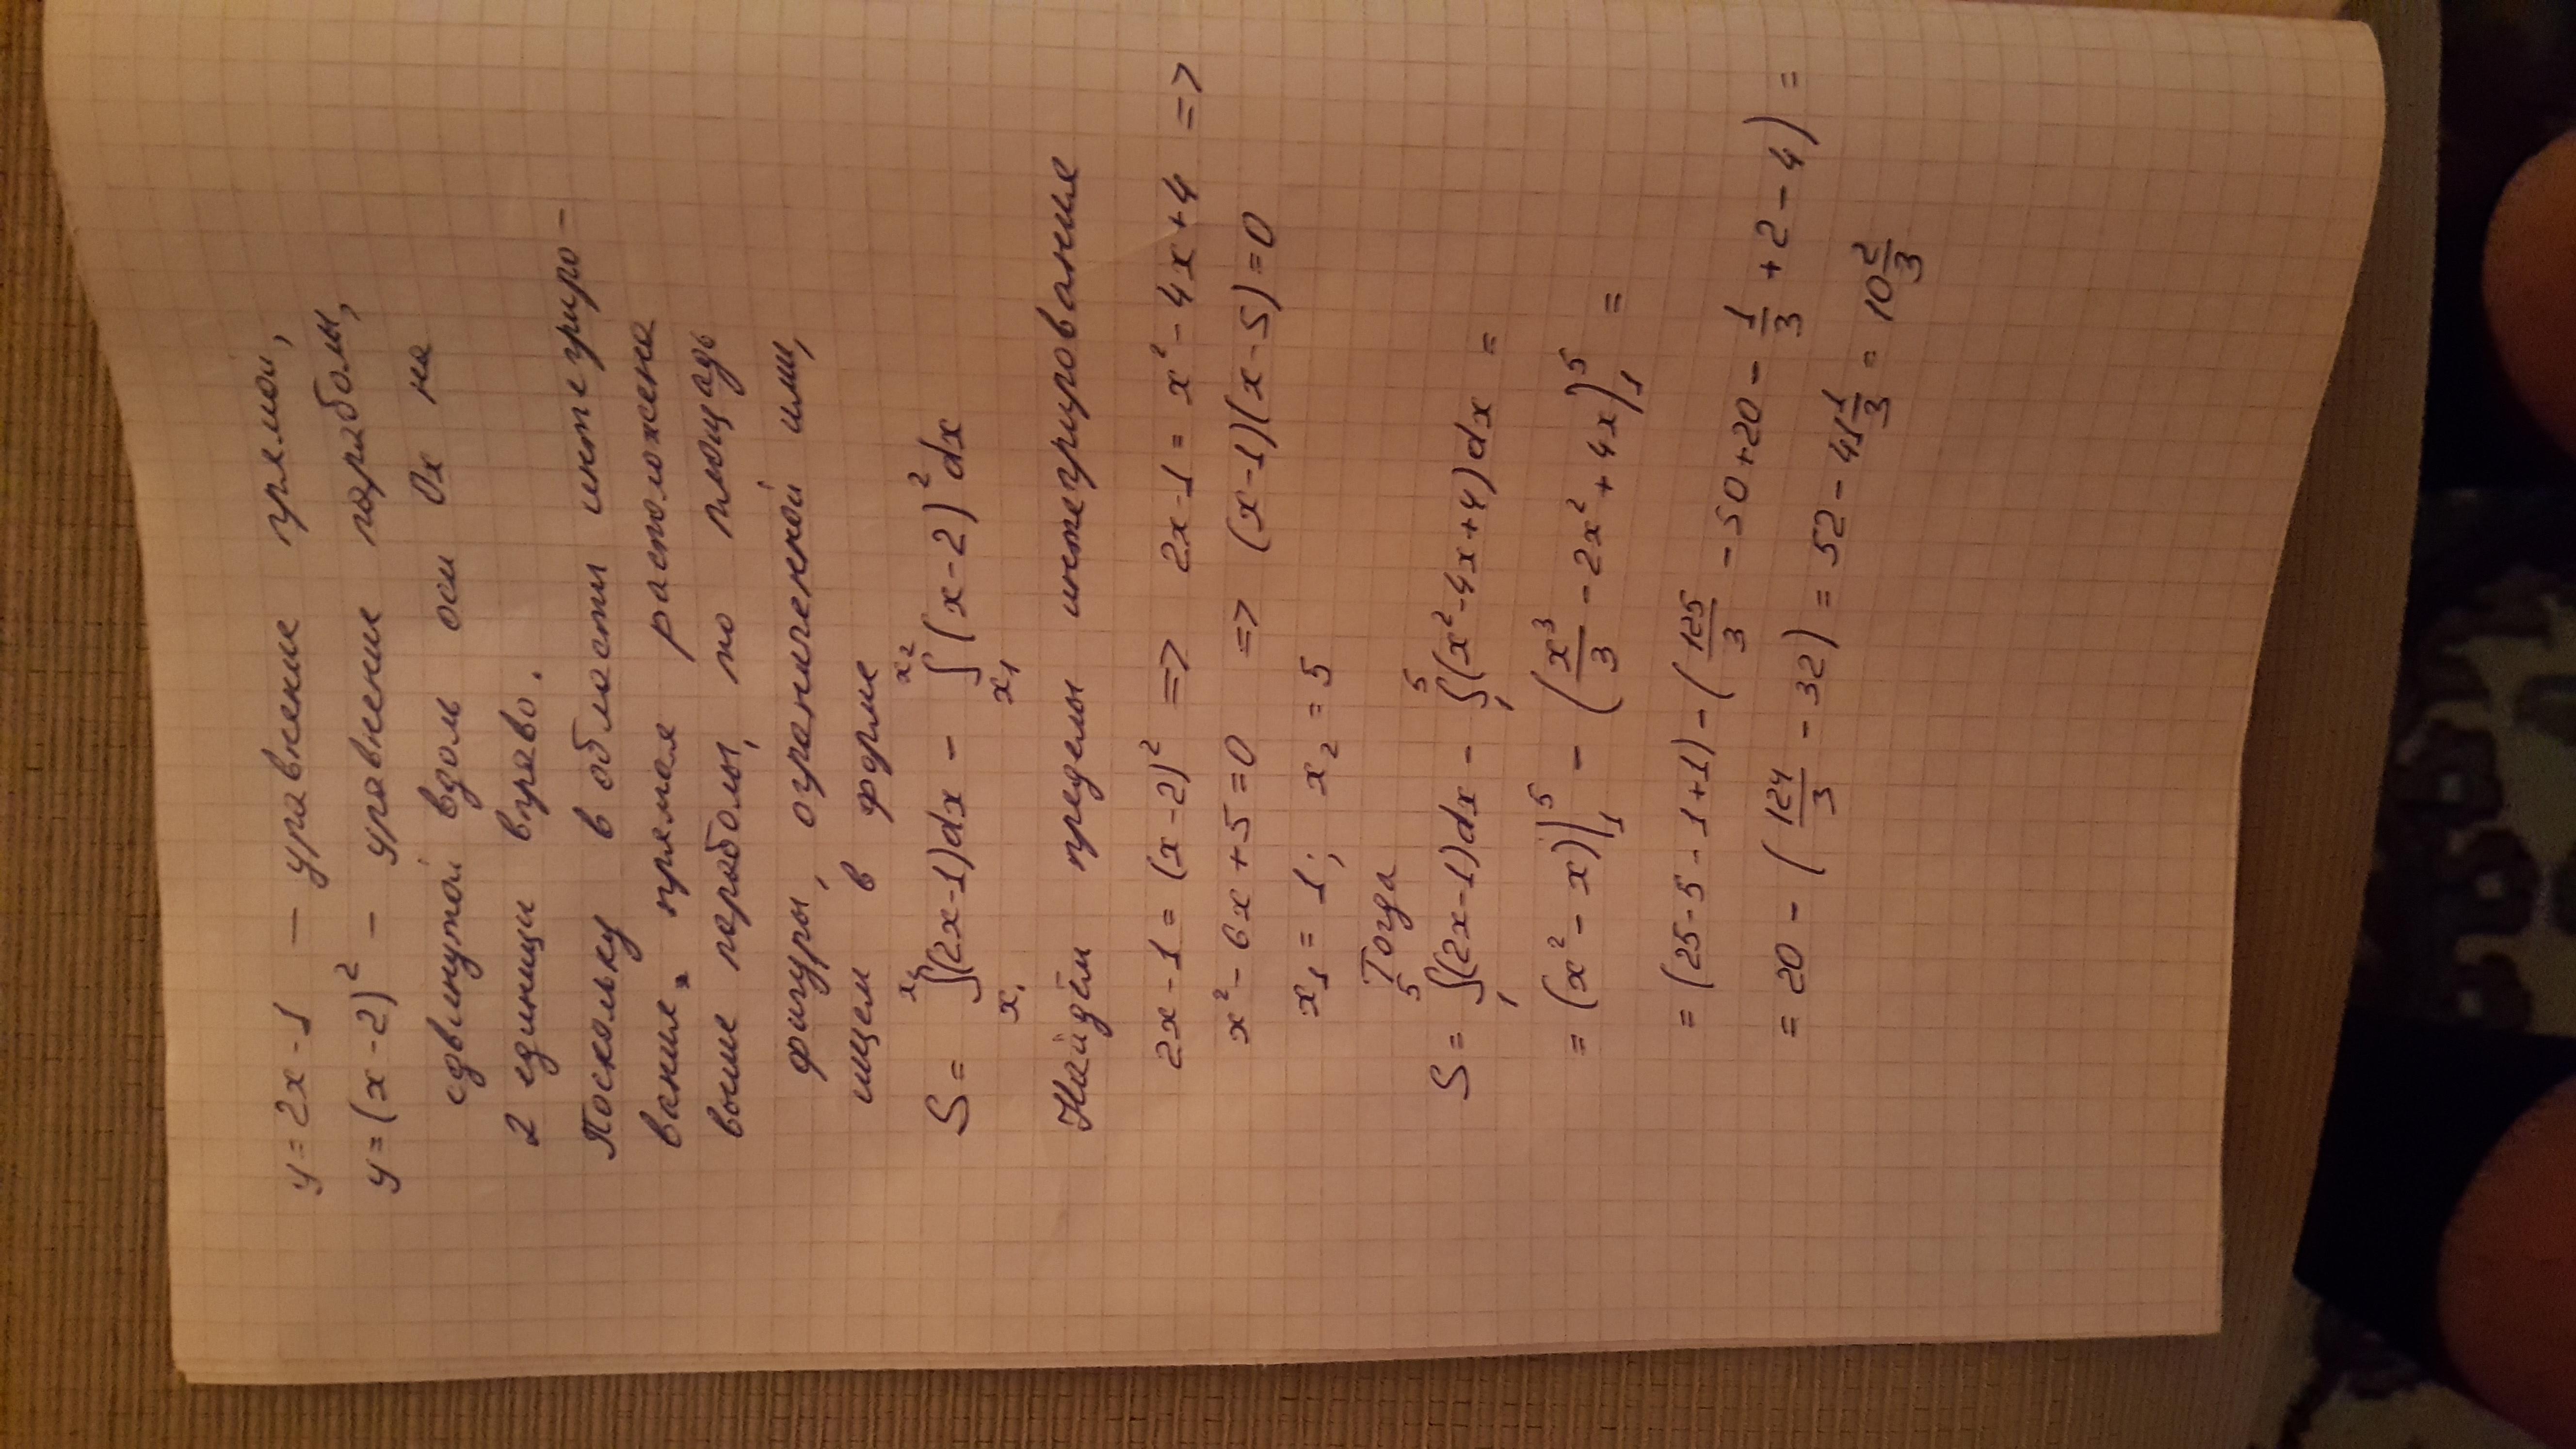 y = 2x - 1 — уравнение прямой,
y = (x - 2)² - уравнение параболы,
сдвинутой вдоль оси Ox на
2 единицы вправо.
Поскольку в области интегриро-
вания прямая расположена
выше параболы, то площадь
фигуры, ограниченной ими,
ищем в форме
S = ∫_{x₁}^{x₂} (2x-1)dx - ∫_{x₁}^{x₂} (x-2)² dx
Найдём пределы интегрирования
2x - 1 = (x - 2)² => 2x - 1 = x² - 4x + 4 =>
x² - 6x + 5 = 0 => (x - 1)(x - 5) = 0
x₁ = 1; x₂ = 5
Тогда
S = ∫₁⁵ (2x-1)dx - ∫₁⁵ (x² - 4x + 4)dx =
= (x² - x)|₁⁵ - (x³/3 - 2x² + 4x)|₁⁵ =
= (25 - 5 - 1 + 1) - (125/3 - 50 + 20 - 1/3 + 2 - 4) =
= 20 - (124/3 - 32) = 52 - 41 1/3 = 10 2/3